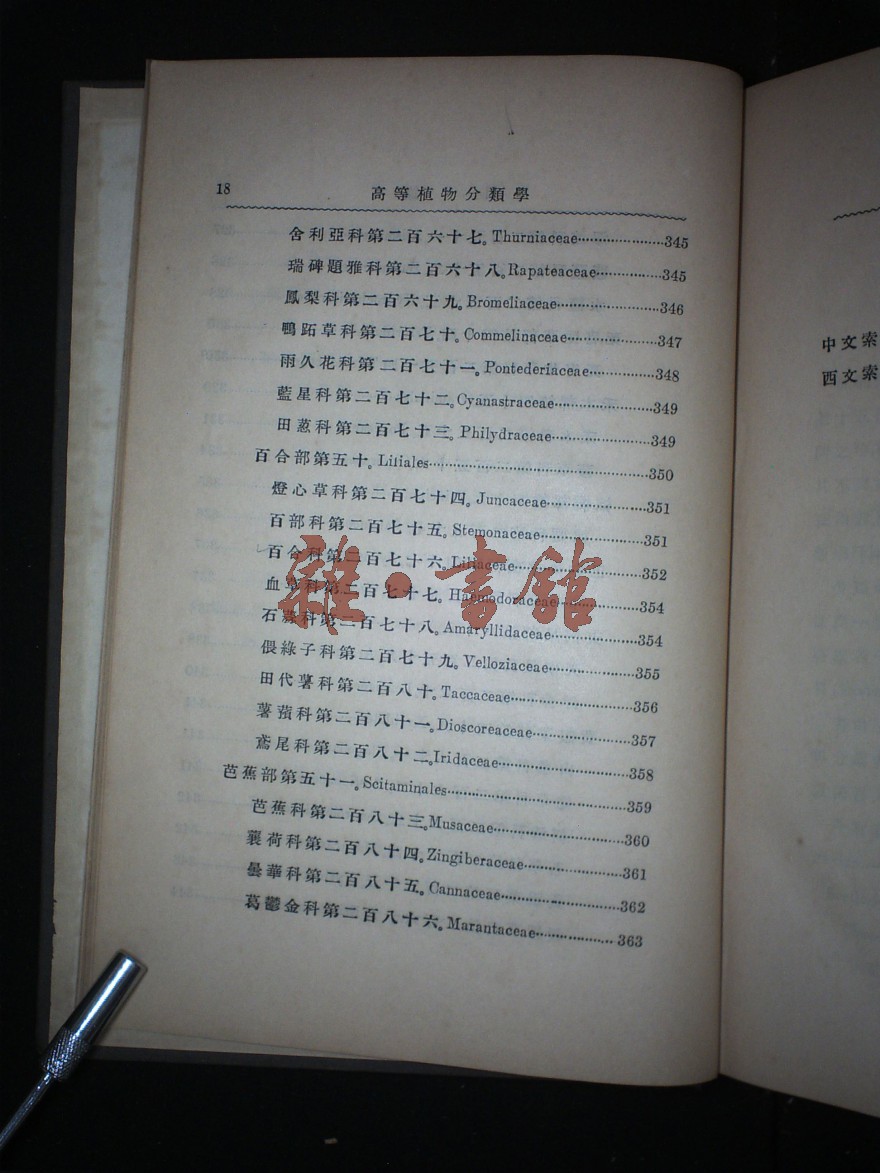 18 高等植物分類學
舍利亞科第二百六十七。Thurniaceae……………………345
瑞碑題雅科第二百六十八。Rapateaceae………………345
鳳梨科第二百六十九。Bromeliaceae…………………………346
鴨跖草科第二百七十。Commelinaceae……………………347
雨久花科第二百七十一。Pontederiaceae………………348
藍星科第二百七十二。Cyanastraceae………………………349
田葱科第二百七十三。Philydraceae………………………349
百合部第五十。Liliales……………………………………………………350
燈心草科第二百七十四。Juncaceae………………………351
百部科第二百七十五。Stemonaceae…………………………351
百合科第二百七十六。Liliaceae………………………………352
血草科第二百七十七。Haemodoraceae……………………354
石蒜科第二百七十八。Amaryllidaceae……………………354
偎綠子科第二百七十九。Velloziaceae……………………355
田代薯科第二百八十。Taccaceae……………………………356
薯蕷科第二百八十一。Dioscoreaceae………………………357
鳶尾科第二百八十二。Iridaceae………………………………358
芭蕉部第五十一。Scitaminales…………………………………………359
芭蕉科第二百八十三。Musaceae………………………………360
襄荷科第二百八十四。Zingiberaceae………………………361
曇華科第二百八十五。Cannaceae……………………………362
葛鬱金科第二百八十六。Marantaceae…………………363
中文索
西文索
雜·書館